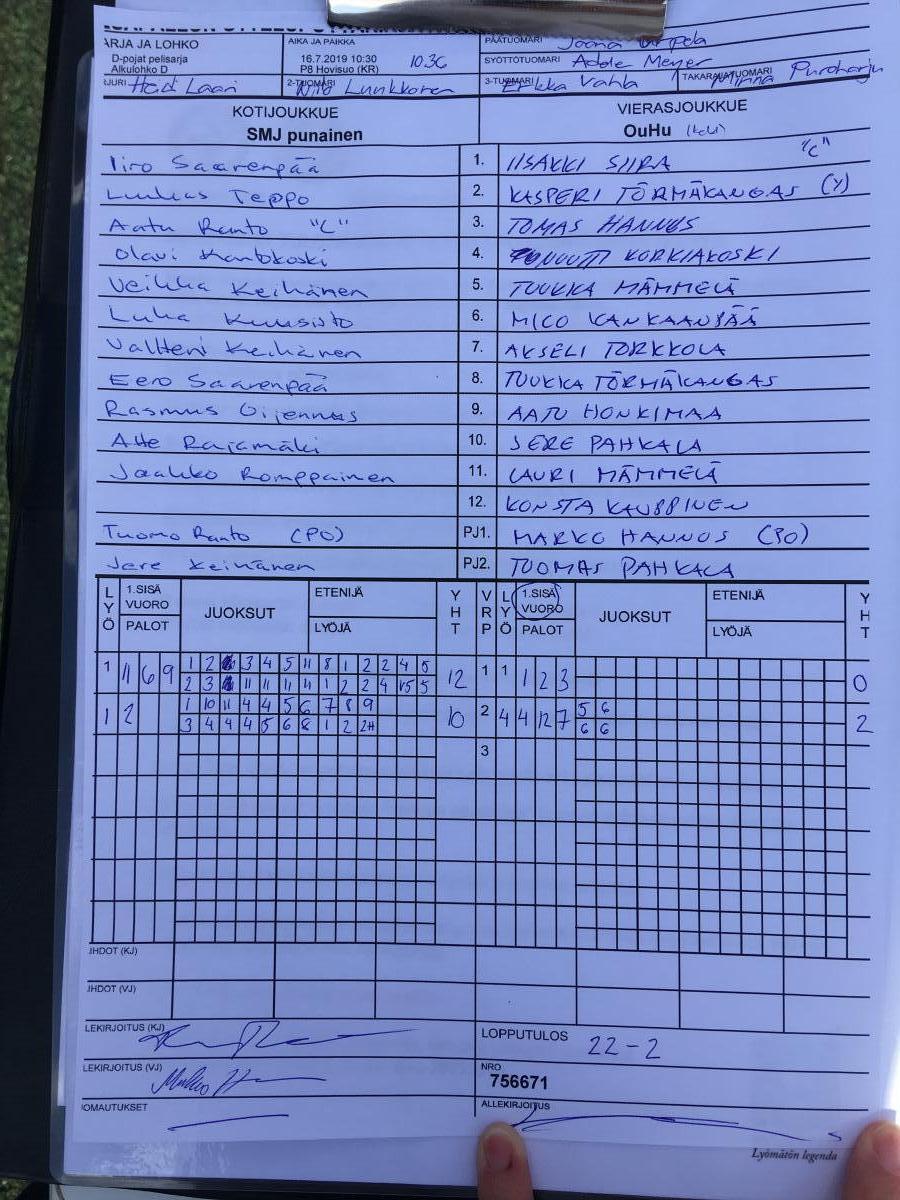 ARJA JA LOHKO
D-pojat pelisarja
Alkulohko D
AIKA JA PAIKKA
16.7.2019 10:30 10.30
P8 Hovisuo (KR)
PÄÄTUOMARI Joona
SYÖTTÖTUOMARI Adele Meyer
2-TUOMARI Luukkonen
3-TUOMARI Vahla
TAKARAJATUOMARI Minna Puroharju
KOTIJOUKKUE
SMJ punainen
VIERASJOUKKUE
OuHu
Iiro Saarenpää 1. IISAKKI SIIRA "C"
Luukas Teppo 2. KASPERI TÖRMÄKANGAS
Aatu Ranto "C" 3. TOMAS HANNUS
Olavi 4. KORKIAKOSKI
Veikka Keihänen 5. TUUKKA MÄMMELÄ
Luka Kuusisto 6. MICO KANKAANPÄÄ
Valtteri Keihänen 7. AKSELI TORKKOLA
Eero Saarenpää 8. TUUKKA TÖRMÄKANGAS
Rasmus Oijennus 9. AATU HONKIMAA
Atte Rajamäki 10. JERE PAHKALA
Jaakko Romppainen 11. LAURI MÄMMELÄ
12. KONSTA KAUPPINEN
Tuomo Ranto (PO) PJ1. MARKO HANNUS (PO)
Jere Keihänen PJ2. TUOMAS PAHKALA
LYÖ 1.SISÄ VUORO PALOT JUOKSUT ETENIJÄ LYÖJÄ YHT VRP LYÖ 1.SISÄ VUORO PALOT JUOKSUT ETENIJÄ LYÖJÄ YHT
1 11 6 9 1 2 3 4 5 11 8 1 2 2 4 5 12 1 1 1 2 3 0
2 3 11 11 11 11 1 2 2 4 5
1 2 1 10 11 4 4 5 6 7 8 9 10 2 4 4 12 7 5 6 2
3 4 4 4 5 6 8 1 2 2H 6 6
3
JHDOT (KJ)
JHDOT (VJ)
LEKIRJOITUS (KJ)
LOPPUTULOS 22-2
LEKIRJOITUS (VJ)
NRO
756671
OMAUTUKSET
ALLEKIRJOITUS
Lyömätön legenda